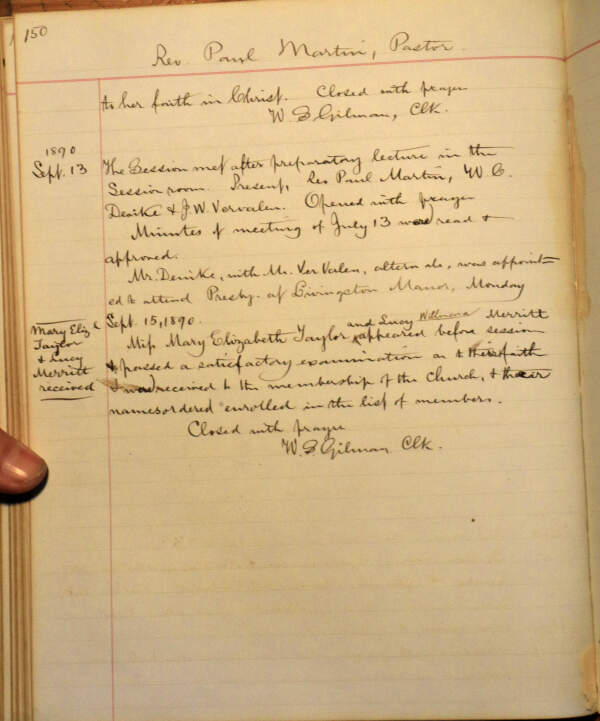 150
Rev. Paul Martin, Pastor.
to her faith in Christ. Closed with prayer
W S Gilman, Clk.
1890
Sept. 13
The Session met after preparatory lecture in the
Session room. Present, Rev Paul Martin, W. C.
Denike & J. W. Vervalen. Opened with prayer
Minutes of meeting of July 13 were read &
approved.
Mr. Denike, with Mr. Ver Valen, alternate, was appoint-
ed to attend Presby. at Livingston Manor, Monday
Sept. 15, 1890.
Mary Eliz
Taylor
& Lucy
Merritt
received
Miss Mary Elizabeth Taylor and Lucy Merritt
appeared before session
& passed a satisfactory examination as to their faith
& was received to the membership of the church, & their
names ordered enrolled in the list of members.
Closed with prayer
W. S Gilman Clk.